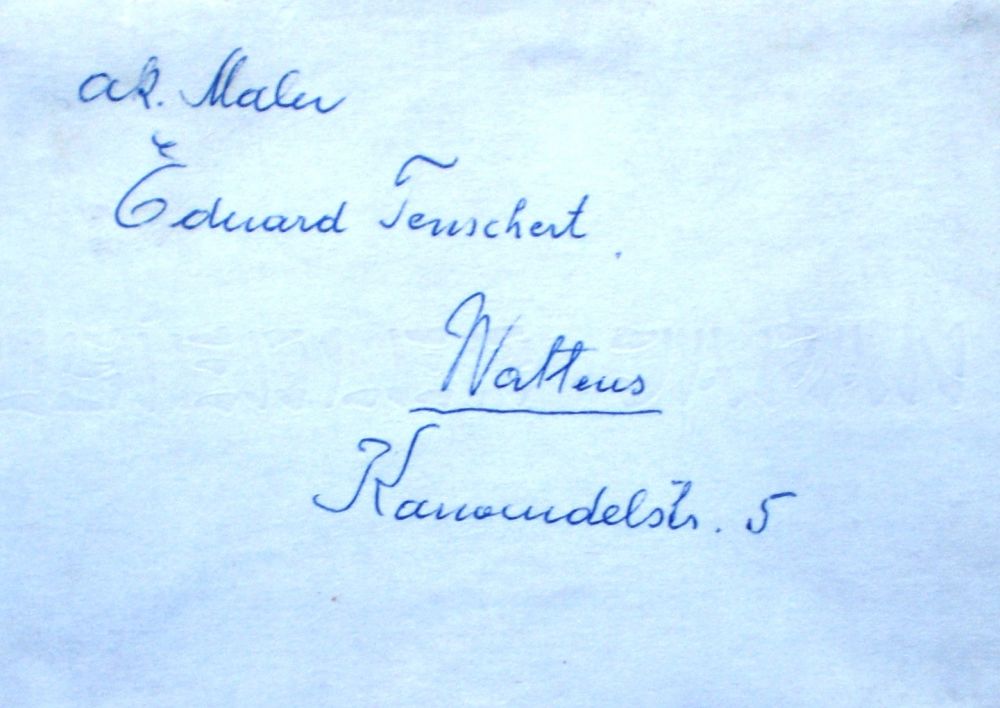 ak. Maler
Eduard Teuschert
Wattens
Karwendelstr. 5